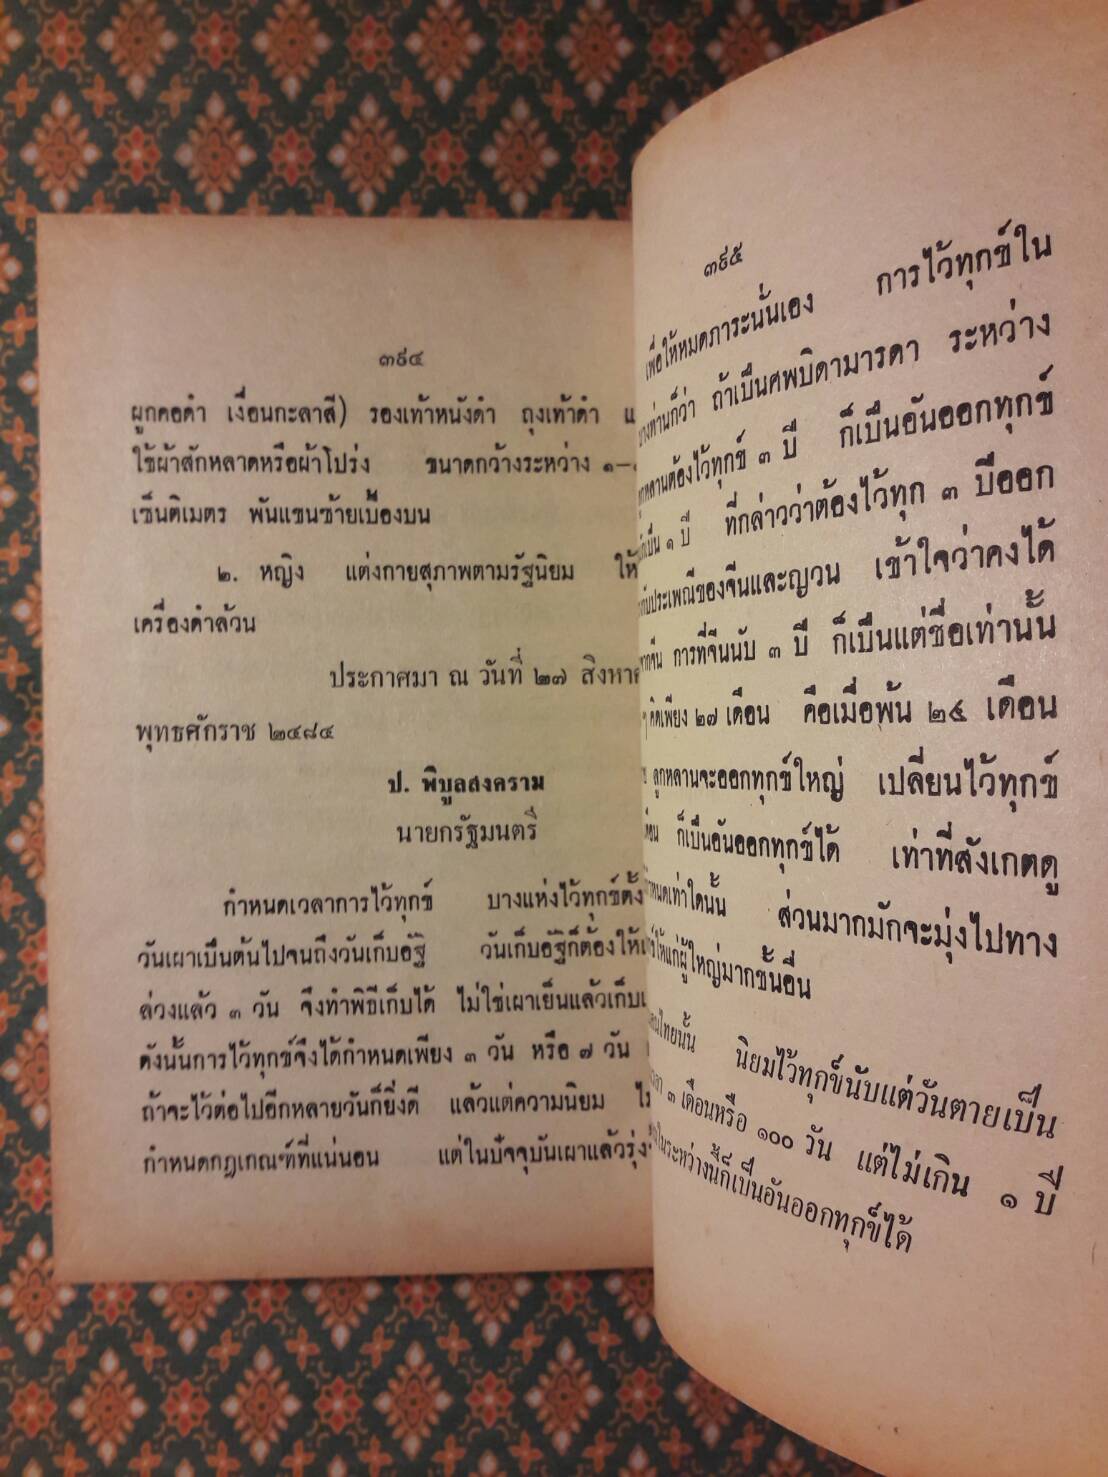 ๓๙๔
ผูกคอดำ เงื่อนกะลาสี) รองเท้าหนังดำ ถุงเท้าดำ
ใช้ผ้าสักหลาดหรือผ้าโปร่ง ขนาดกว้างระหว่าง
เซ็นติเมตร พันแขนซ้ายเบื้องบน
๒. หญิง แต่งกายสุภาพตามรัฐนิยม ให้
เครื่องดำล้วน
ประกาศมา ณ วันที่ ๒๗
พุทธศักราช ๒๔๘๔
ป. พิบูลสงคราม
นายกรัฐมนตรี
กำหนดเวลาการไว้ทุกข์ บางแห่งไว้ทุกข์
วันเผาเป็นต้นไปจนถึงวันเก็บอัฐิ วันเก็บอัฐิก็ต้องให้
ล่วงแล้ว ๓ วัน จึงทำพิธีเก็บได้ ไม่ใช่เผาเย็นแล้วเก็บ
ดังนั้นการไว้ทุกข์จึงได้กำหนดเพียง ๓ วัน หรือ ๗ วัน
ถ้าจะไว้ต่อไปอีกหลายวันก็ยิ่งดี แล้วแต่ความนิยม
กำหนดกฎเกณฑ์ที่แน่นอน แต่ในปัจจุบันเผาแล้ว
๓๙๕
เพื่อให้หมดภาระนั่นเอง การไว้ทุกข์ใน
บางท่านก็ว่า ถ้าเป็นศพบิดามารดา ระหว่าง
ลูกหลานต้องไว้ทุกข์ ๓ ปี ก็เป็นอันออกทุกข์
๑ ปี ที่กล่าวว่าต้องไว้ทุก ๓ ปีออก
ประเพณีของจีนและญวน เข้าใจว่าคงได้
การที่จีนนับ ๓ ปี ก็เป็นแต่ชื่อเท่านั้น
คิดเพียง ๒๗ เดือน คือเมื่อพ้น ๒๕ เดือน
ลูกหลานจะออกทุกข์ใหญ่ เปลี่ยนไว้ทุกข์
ก็เป็นอันออกทุกข์ได้ เท่าที่สังเกตดู
เท่าใดนั้น ส่วนมากมักจะมุ่งไปทาง
ให้แก่ผู้ใหญ่มากชั้นอื่น
ไทยนั้น นิยมไว้ทุกข์นับแต่วันตายเป็น
๓ เดือนหรือ ๑๐๐ วัน แต่ไม่เกิน ๑ ปี
ในระหว่างนี้ก็เป็นอันออกทุกข์ได้